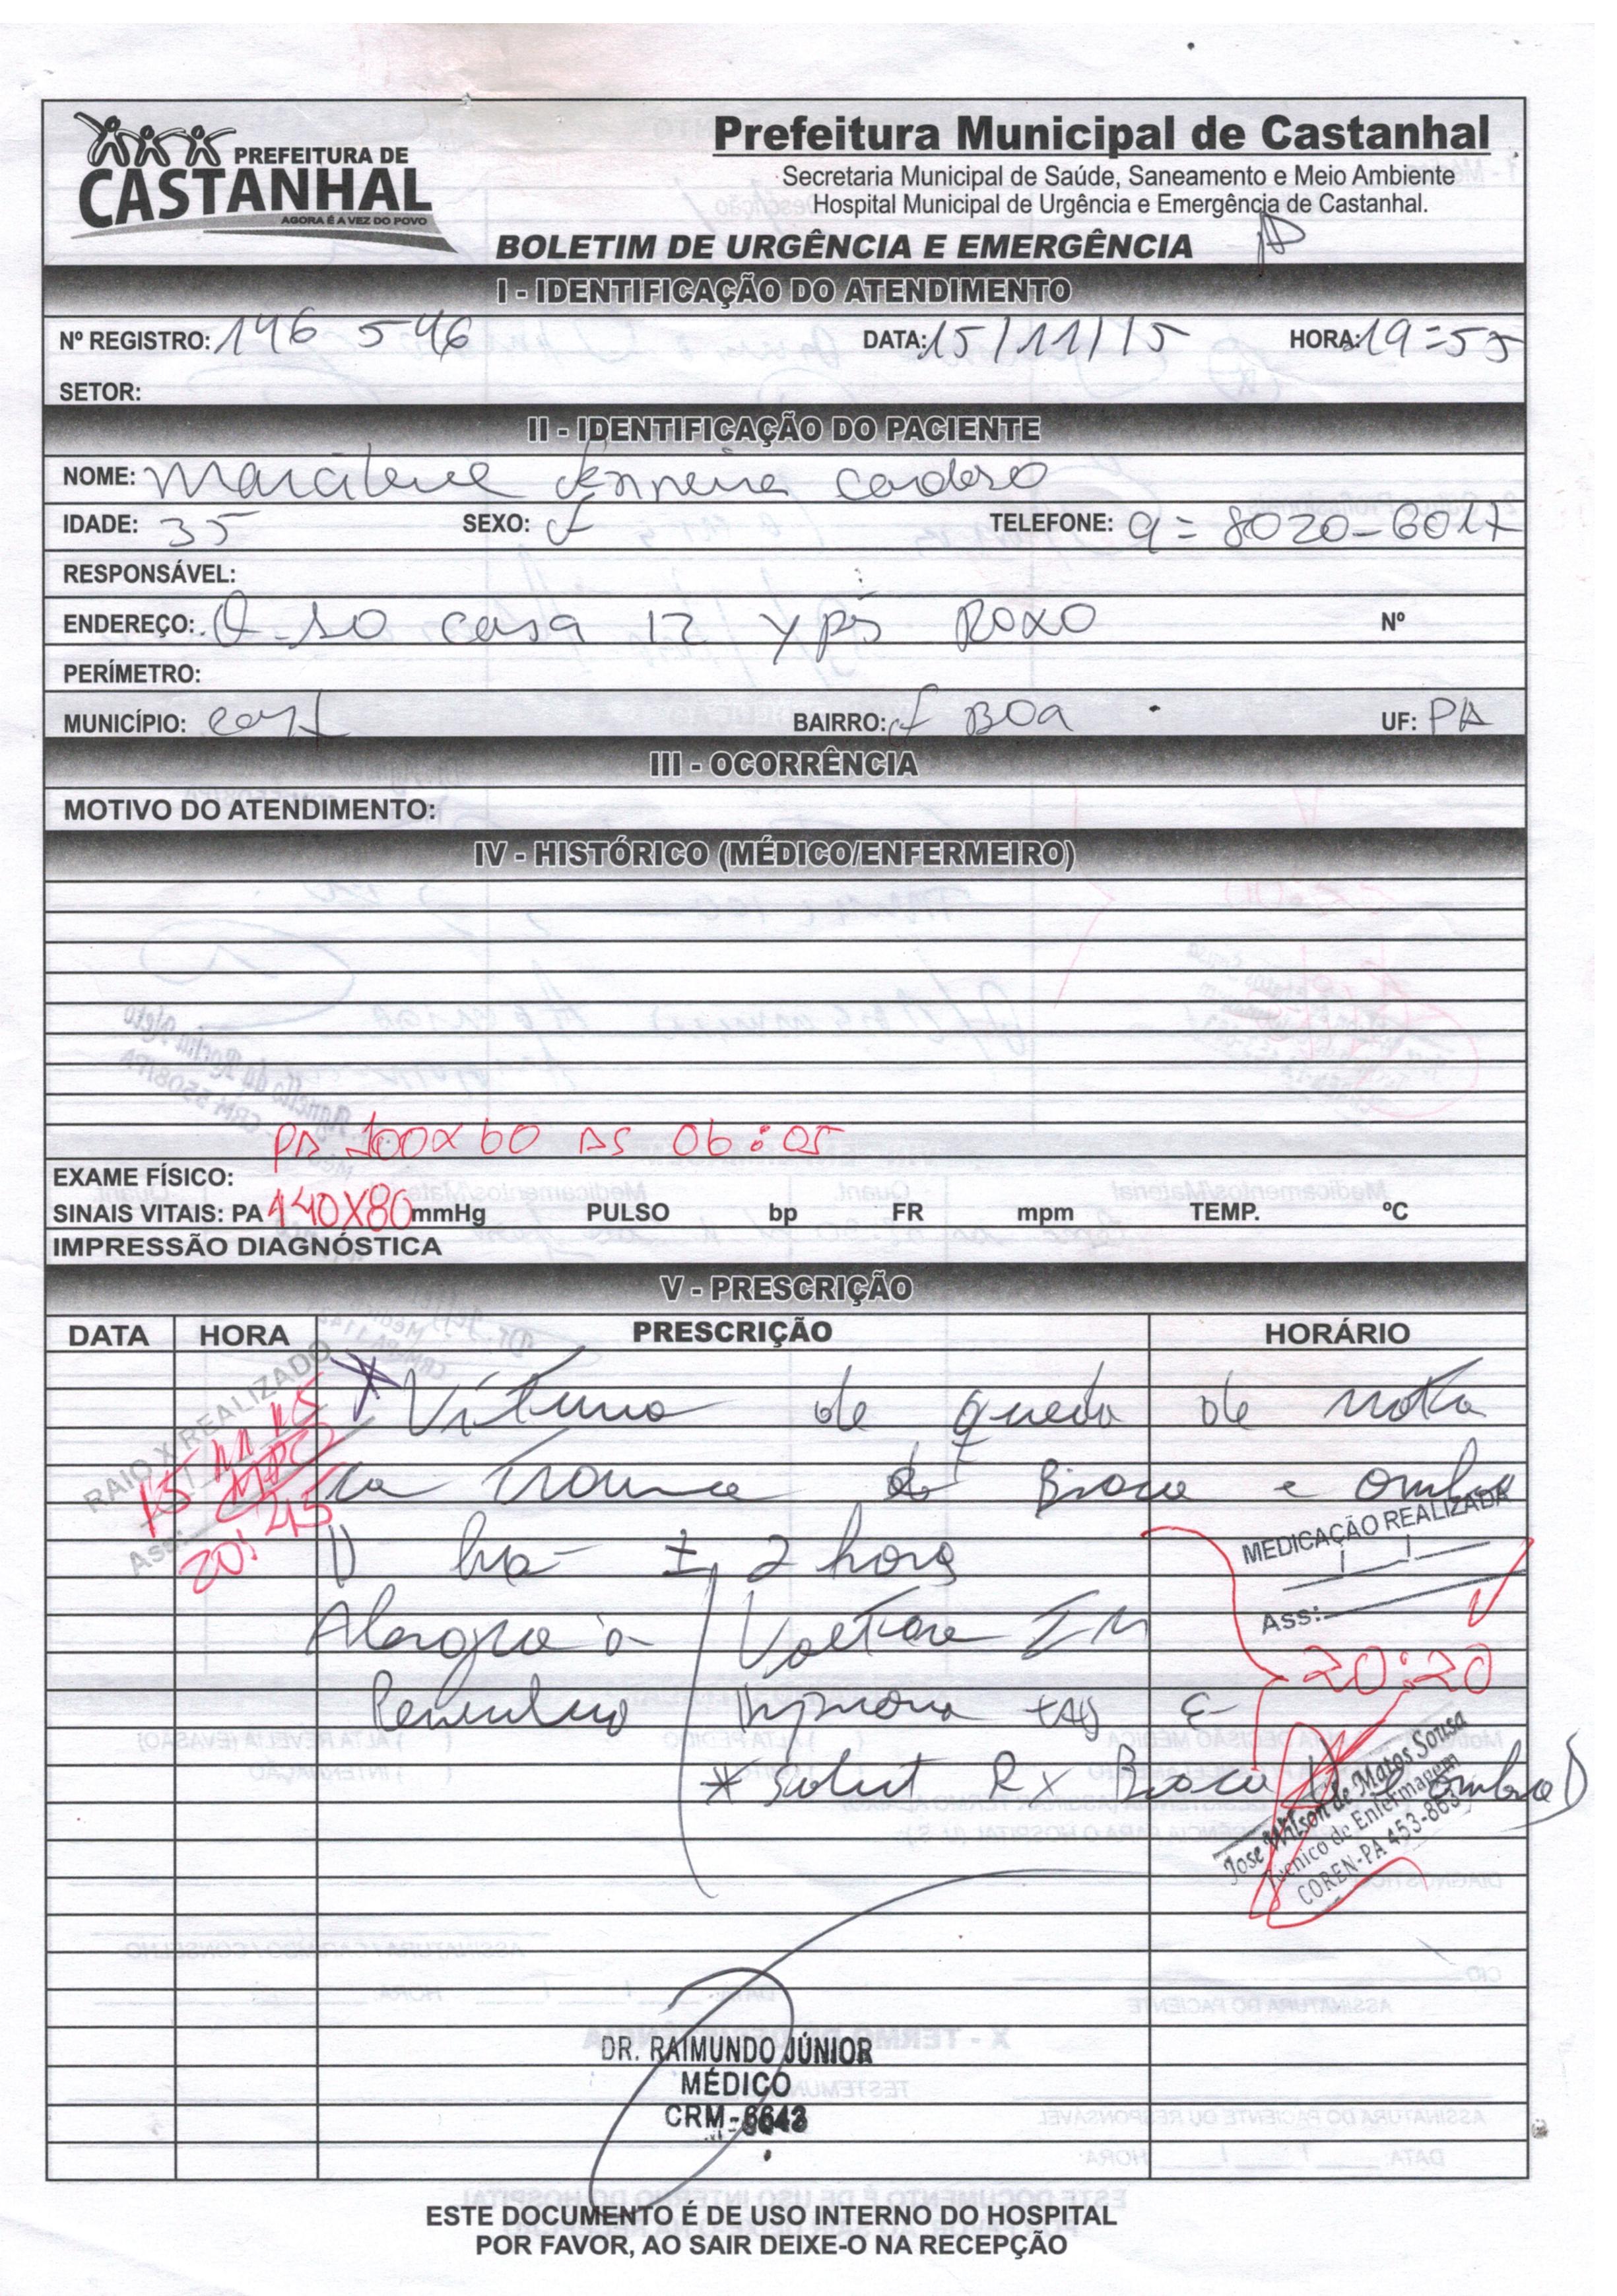 PREFEITURA DE
CASTANHAL
AGORA É A VEZ DO POVO
Prefeitura Municipal de Castanhal
Secretaria Municipal de Saúde, Saneamento e Meio Ambiente
Hospital Municipal de Urgência e Emergência de Castanhal.
BOLETIM DE URGÊNCIA E EMERGÊNCIA
I - IDENTIFICAÇÃO DO ATENDIMENTO
Nº REGISTRO: 146 546 DATA: 15/11/15 HORA: 19=55
SETOR:
II - IDENTIFICAÇÃO DO PACIENTE
NOME: Cardoso
IDADE: 35 SEXO: f TELEFONE: 9= 8020-6017
RESPONSÁVEL:
ENDEREÇO: Q-10 casa 12 ypê Roxo Nº
PERÍMETRO:
MUNICÍPIO: BAIRRO: f Boa UF: PA
III - OCORRÊNCIA
MOTIVO DO ATENDIMENTO:
IV - HISTÓRICO (MÉDICO/ENFERMEIRO)
PA 100x60 AS 06:05
EXAME FÍSICO:
SINAIS VITAIS: PA 140X80 mmHg PULSO bp FR mpm TEMP. ºC
IMPRESSÃO DIAGNÓSTICA
V - PRESCRIÇÃO
DATA HORA PRESCRIÇÃO HORÁRIO
RAIO X REALIZADO
15 11 15
Ass:
20:45
Vítima de queda de moto
trauma de e ombro
D há ± 2 horas
MEDICAÇÃO REALIZADA
Ass:
Alergia à Voltaren IM
20:20
Dipirona
* Solicit Rx ombro D
Jose Wilson de Matos Sousa
Técnico de Enfermagem
COREN-PA 453-863
DR. RAIMUNDO JÚNIOR
MÉDICO
CRM-6643
ESTE DOCUMENTO É DE USO INTERNO DO HOSPITAL
POR FAVOR, AO SAIR DEIXE-O NA RECEPÇÃO